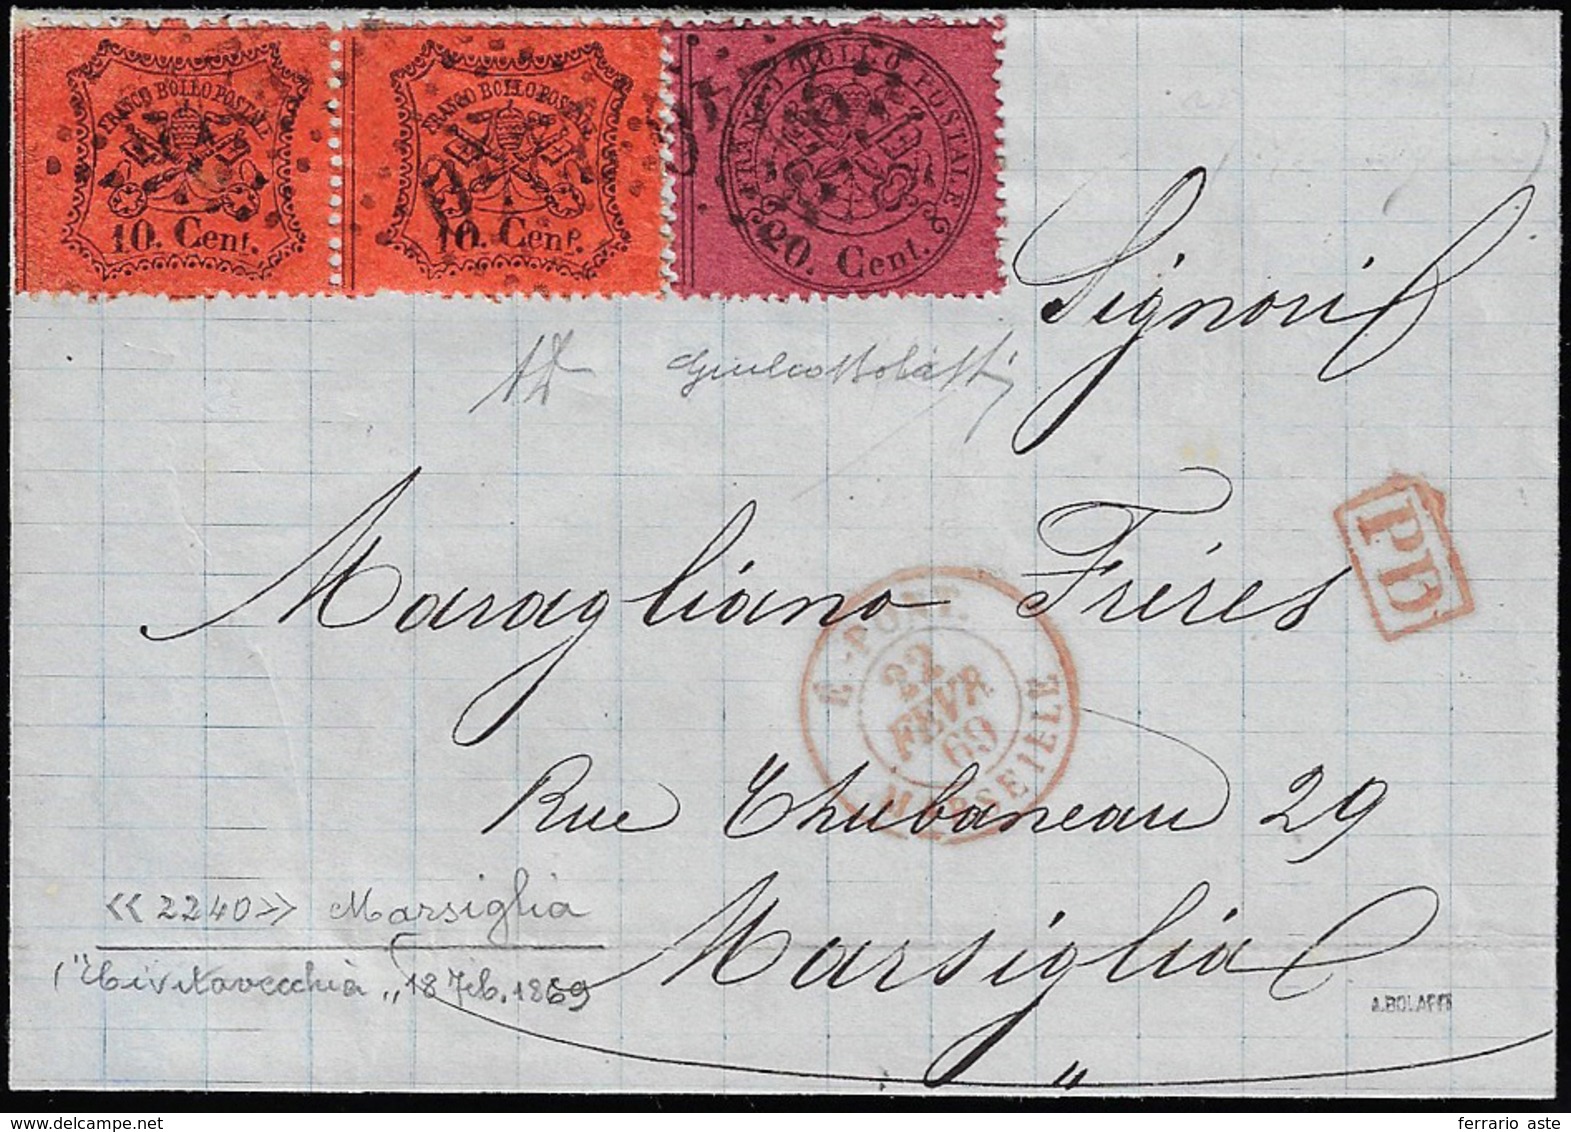 FRANCO BOLLO POSTALE
10. Cent.
FRANCO BOLLO POSTALE
10. Cent.
FRANCO BOLLO POSTALE
20. Cent.
Signori
Giulio Bolaffi
Maragliano Fréres
PD
É.-PONT.
22
FEVR
69
MARSEILLE
Rue Thubaneau 29
<<2240>> Marsiglia
"Civitavecchia" 18 Feb. 1869
Marsiglia
A. BOLAFFI
ferrario aste